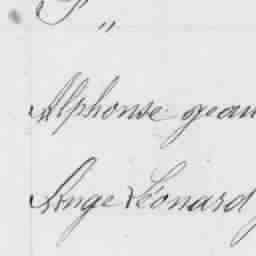 "
Alphonse jean
Ange Léonard